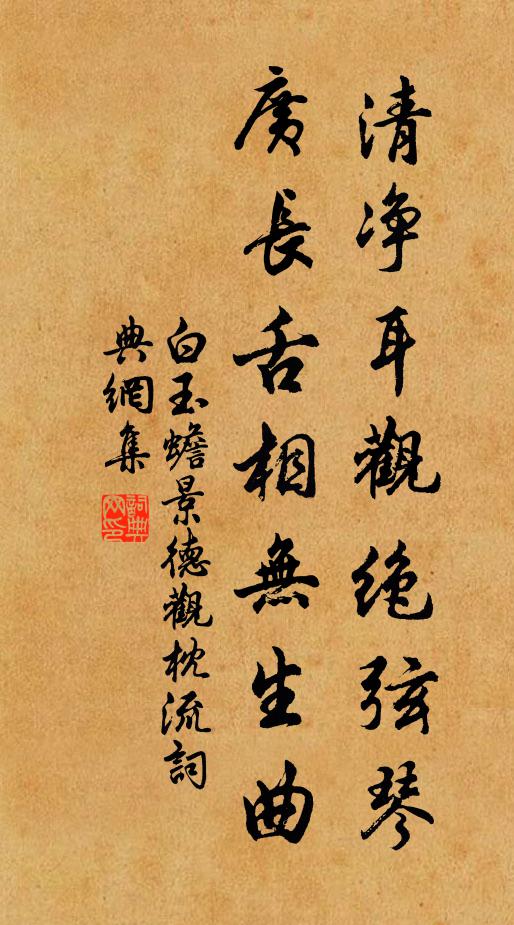 清净耳觀絶弦琴
廣長舌相無生曲
白玉蟾景德觀枕流詞
典網集
詞典
网印